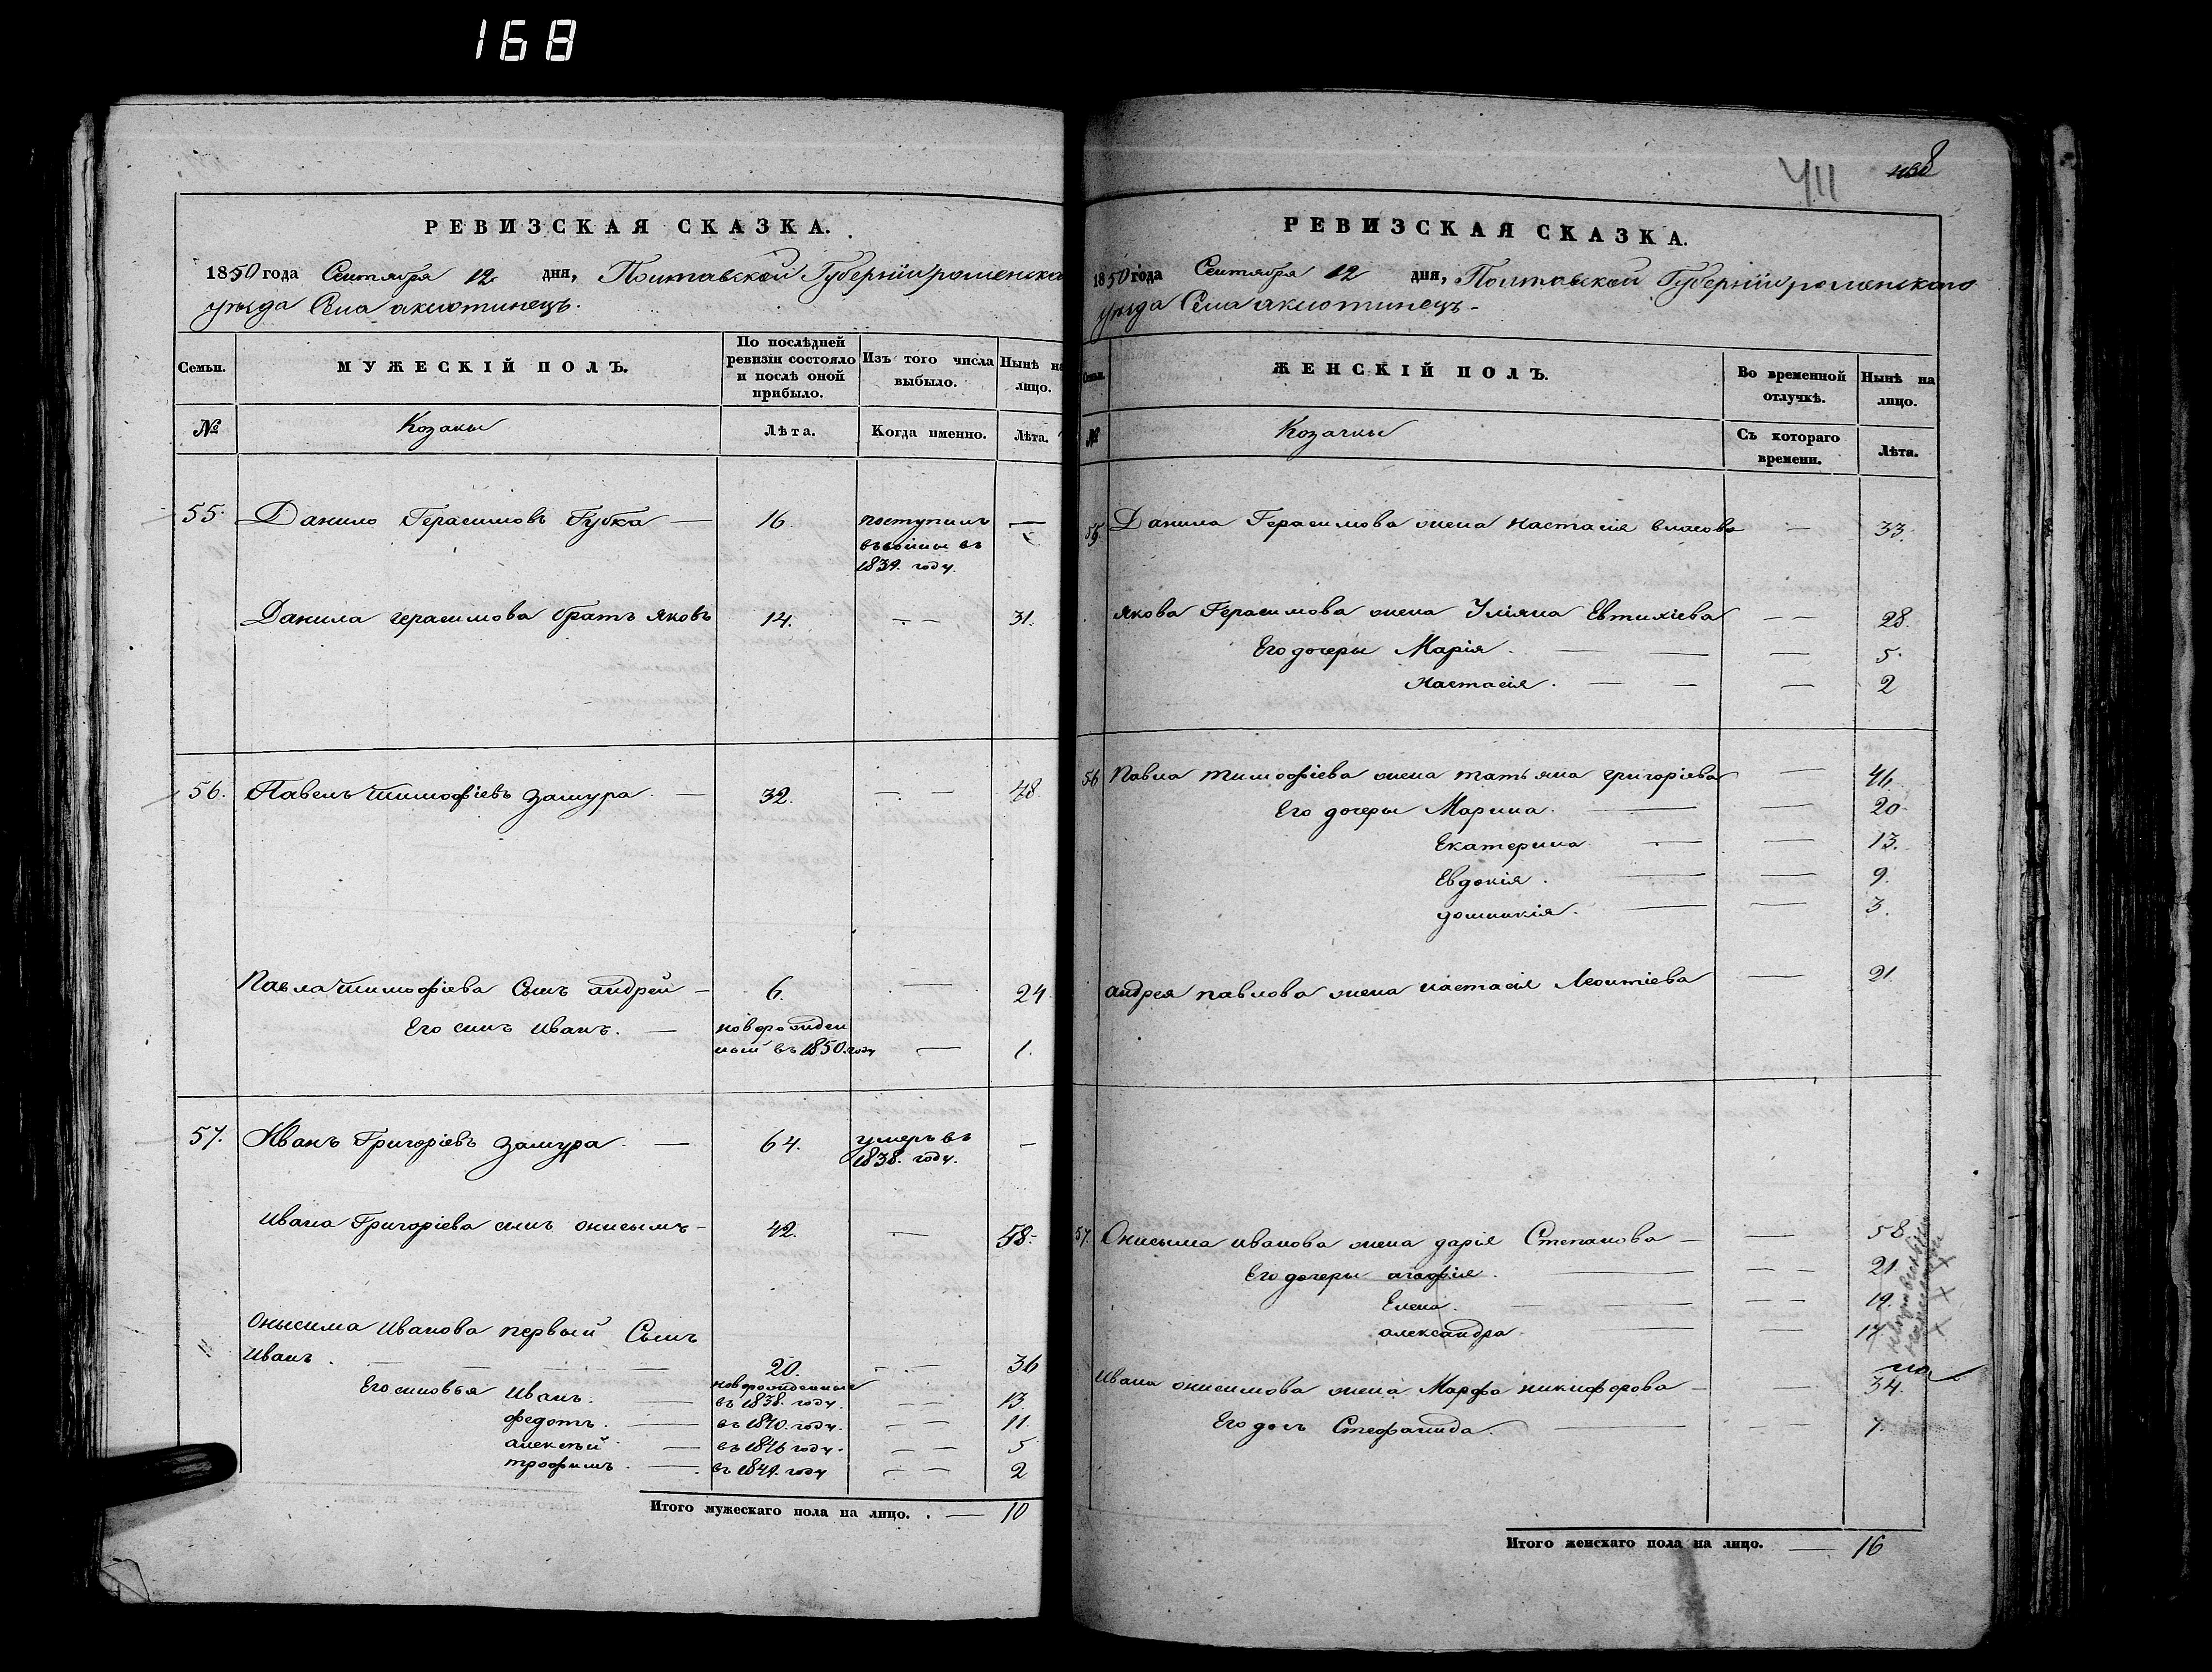 168
РЕВИЗСКАЯ СКАЗКА.
1850 года Сентября 12 дня, Полтавской Губернїи роменска
уѣзда Села аксютинецъ.
Семьи.
МУЖЕСКІЙ ПОЛЪ.
По послѣдней ревизіи состояло и послѣ оной прибыло.
Изъ того числа выбыло.
Нынѣ на лицо.
№
Козаки
Лѣта.
Когда именно.
Лѣта.
55. Данило Герасимовъ Губка — 16. поступилъ —
въ 1839. году.
Данила герасимова братъ яковъ 14. — — 31.
56. Павелъ тимофіевъ замура. — 32. — — 48.
Павла тимофіева Сынъ андрей — 6. — 24
Его сынъ иванъ. — новорожден
ный въ 1850. году — 1.
57. Иванъ Григоріевъ замура. — 64. умеръ въ —
1838. году.
Ивана Григоріева сынъ онисымъ — 42. — 58.
Онысима Иванова первый Сынъ
Иванъ. — — — — 20. — — 36
Его сыновья Иванъ. — новорожденные
въ 1838. году. — — 13.
федотъ. — въ 1840. году. — — 11.
алексѣй — въ 1846 году. — — 5
трофимъ. — въ 1849. году — — 2
Итого мужескаго пола на лицо. . — 10
411
РЕВИЗСКАЯ СКАЗКА.
1850 года Сентября 12 дня, Полтавской Губернїи роменскаго
уѣзда Села аксютинецъ.
Семьи.
ЖЕНСКІЙ ПОЛЪ.
Во временной отлучкѣ.
Нынѣ на лицо.
№
Козачки
Съ котораго времени.
Лѣта.
55. Данила Герасимова жена настасія власова — 33.
якова Герасимова жена Уліяна Евтихіева — — 28.
Его дочеры Марія. — — — 5.
Настасія. — — — 2
56 Павла тимофіева жена татьяна григоріева — 46
Его дочеры Марина. — — 20
Екатерина — — 13.
Евдокія. — — 9.
домникія. — — 3.
андрея павлова жена настасія Леонтіева — 21.
57. Онисыма иванова жена дарія Степанова — — 58.
Его дочеры агафія. — — — 21.
Елена. — — — — 19.
александра. — — 17
Ивана онисимова жена Марфа никифорова — — 34.
Его доч Стефанида. — — — — 7.
Итого женскаго пола на лицо. — 16